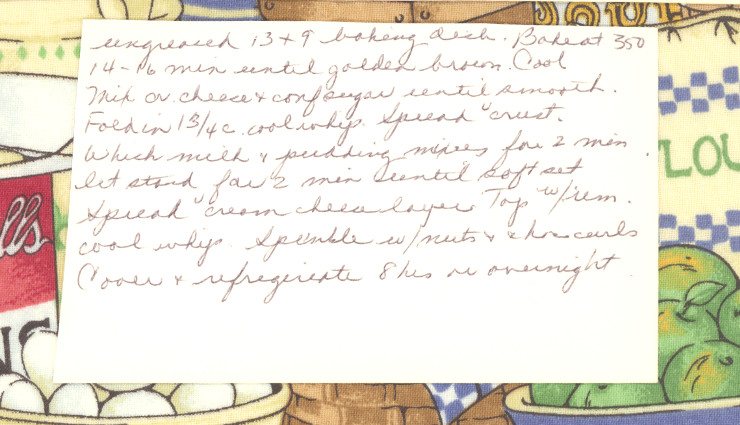 ungreased 13 + 9 baking dish. Bake at 350
14-16 min until golden brown. Cool
Mix cr. cheese + conf sugar until smooth.
Fold in 1 3/4 c. cool whip. Spread " crust.
Whisk milk + pudding mixes for 2 min.
let stand for 2 min until soft set
Spread " cream cheese layer. Top w/rem.
cool whip. Sprinkle w/nuts + choc curls
Cover + refrigerate 8 hrs or overnight
LOU